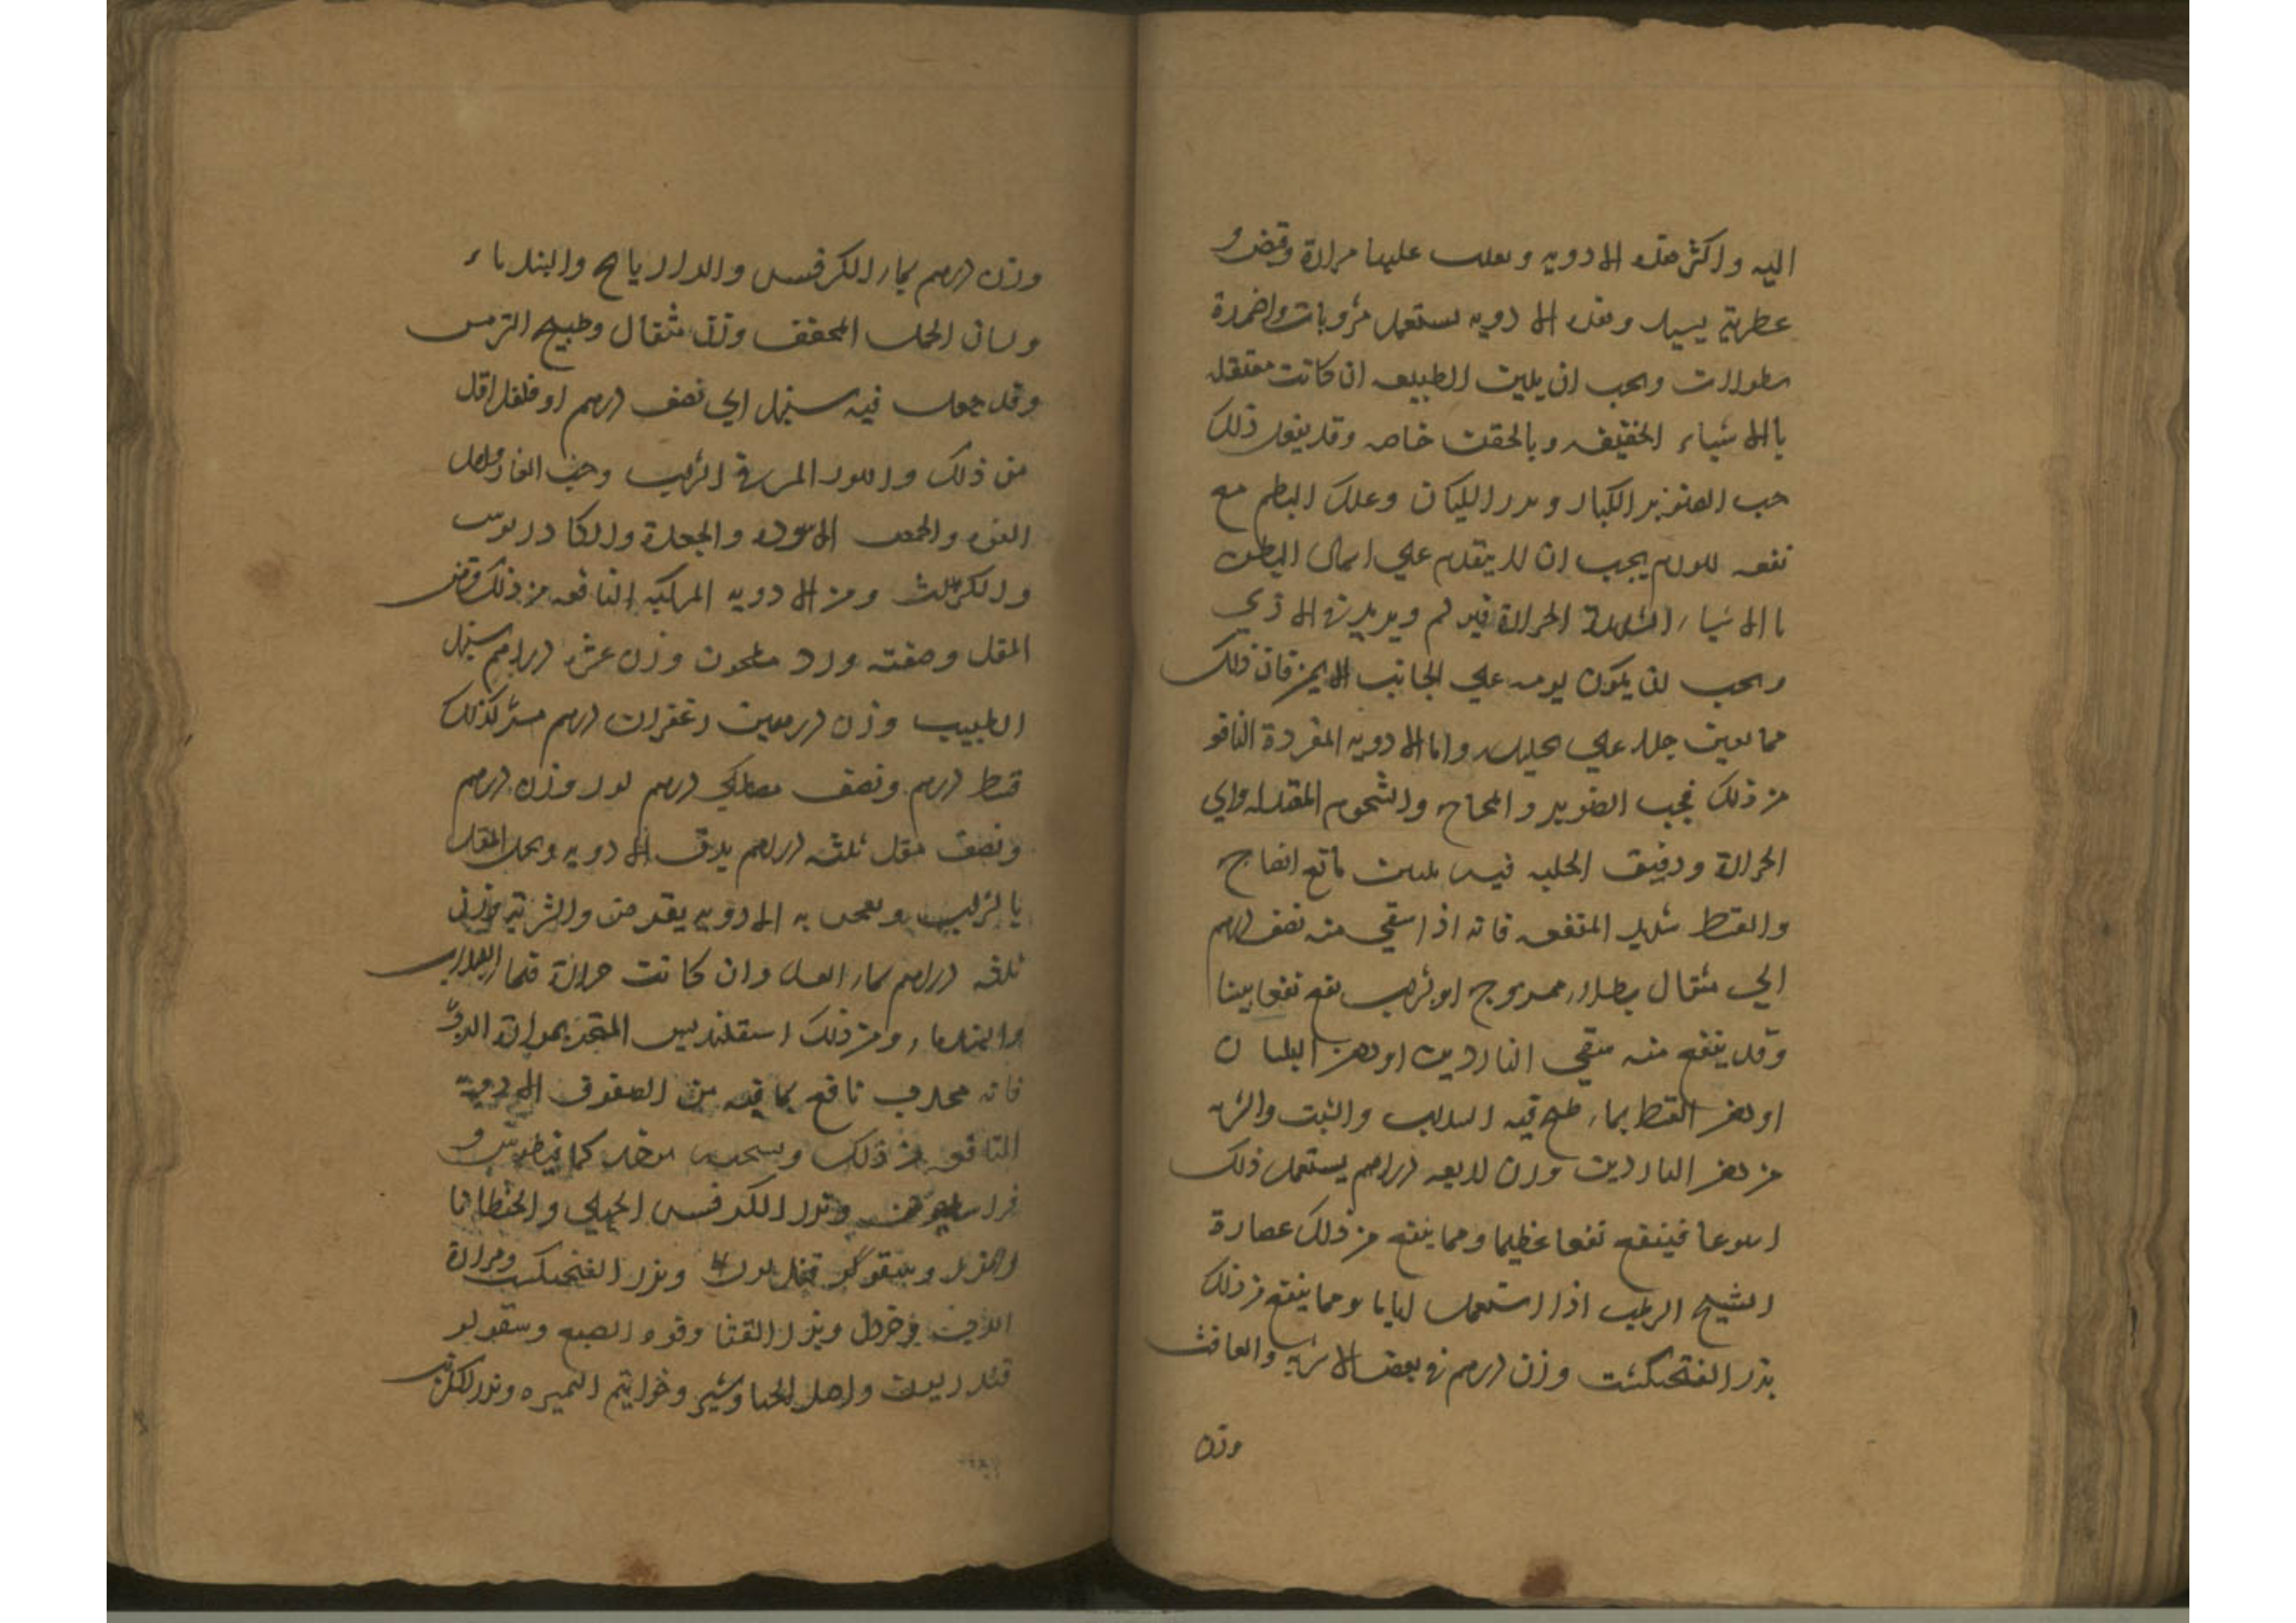 اليه واكثر هذه الادويه وتغلب عليها مرارة وقبض و
عطرية يسير وهذه الادويه تستعمل مشروبات واضمدة
نطولات ويجب ان يلين الطبيعه ان كانت معتقله
بالاشياء الخفيفه وبالحقن خاصه وقد يفعل ذلك
حب الصنوبر الكبار وبزر الكتان وعلك البطم مع
نفعه للورم يجب ان لا يقدم على اسهال البطن
بالاشياء الشديدة الحرارة فيورم ويزيد في الاذي
ويجب ان يكون نومه علي الجانب الايمن فان ذلك
مما يعين جدا علي تحليله واما الادويه المفردة النافع
من ذلك فحب الصنوبر والمخاخ والشحوم المعتدله والي
الحرارة ودقيق الحلبه فيه تليين مانع انضاج
والقسط شديد المنفعه فانه اذا سقي منه نصف درهم
الي مثقال بطلاء ممزوج او شراب نفع نفعا بينا
وقد ينفع منه سقي الناردين او دهن البلسان
او دهن القسط بماء طبخ فيه السداب والشبت والشربه
من دهن الناردين وزن اربعه دراهم يستعمل ذلك
اسبوعا فينفع نفعا عظيما ومما ينفع من ذلك عصارة
الشيح الرطب اذا استعمل اياما ومما ينفع من ذلك
بزر الفنجنكشت وزن درهم في بعض الاشربه والغافث
وزن
وزن درهم بماء الكرفس والرازيانج والهندباء
ولسان الحمل المجفف وزن مثقال وطبيخ الترمس
وقد جعل فيه سنبل الي نصف درهم او فلفل اقل
من ذلك واللوز المر في الشراب وحب الغار واصل
الفوه والحمص الاسود والجعدة والكمادريوس
ومن الادويه المركبه النافعه من ذلك قرص
المقل وصفته ورد مطحون وزن عشره دراهم سنبل
الطيب وزن درهمين زعفران درهم مر كذلك
قسط درهم ونصف مصطكي درهم لوز وزن درهم
ونصف مقل ثلثه دراهم يدق الادويه ويحل المقل
بالشراب ويعجن به الادويه يقرص والشربه وزن
ثلثه دراهم بماء العسل وان كانت حرارة فماء
والهندباء ومن ذلك اسقلنديس المتخذ بمرارة الدب
فانه مجرب نافع بما فيه من الصفوف الادوية
النافعه من ذلك ونسخته يوخذ كمافيطوس و
فراسيون وبزر الكرفس الجبلي والجنطيانا
وبزر الفنجنكشت ومرارة
الدب وخردل وبزر القثا وفوه الصبغ وسقولو
قندريون واصل الجاوشير